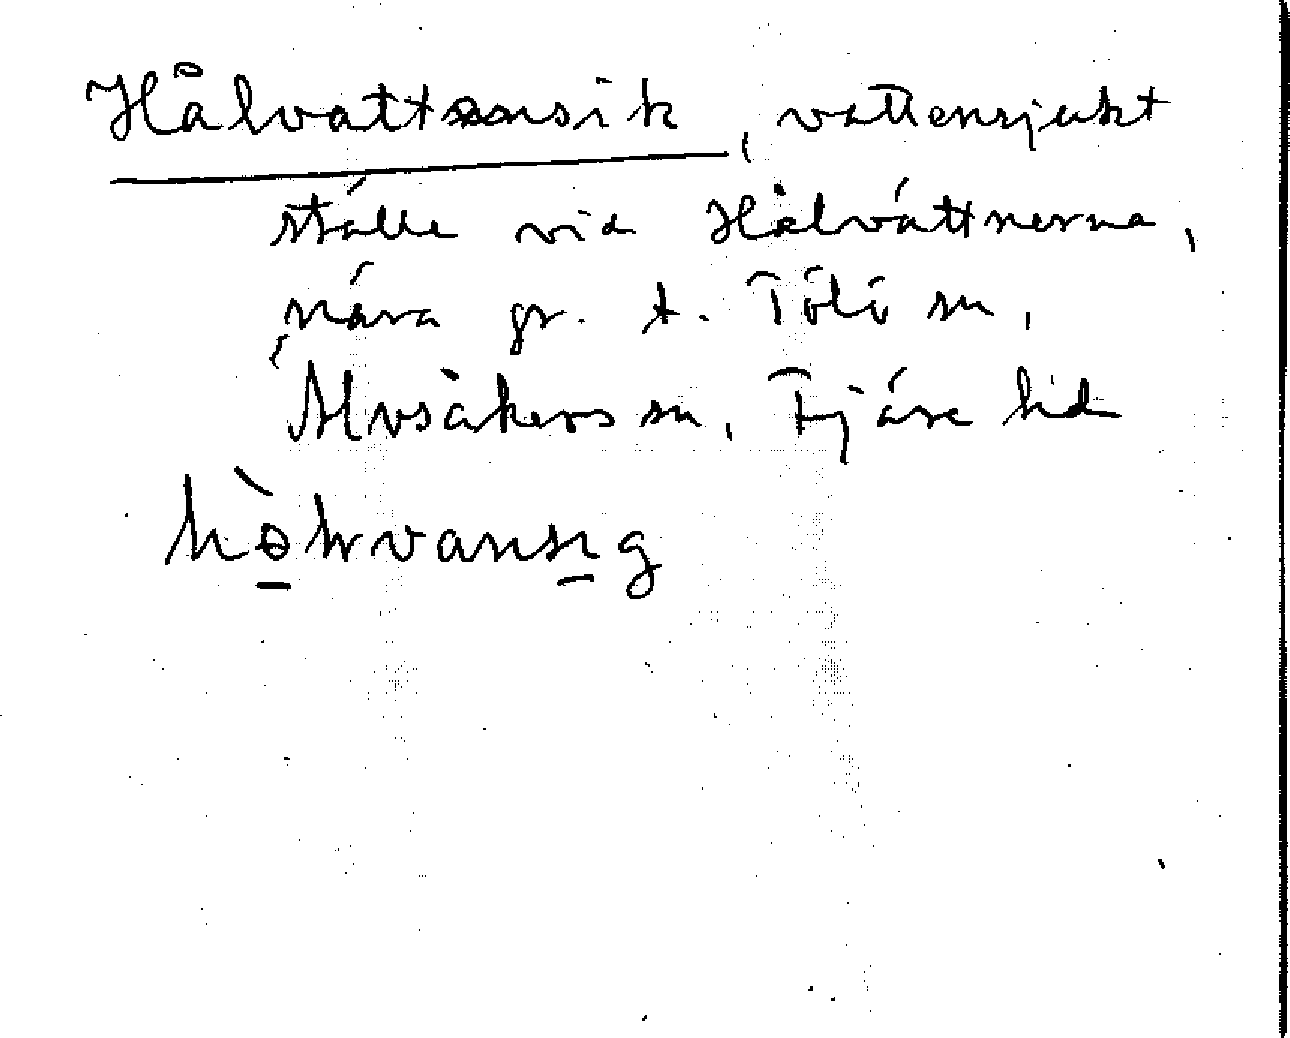 Hålvattensik, vattensjukt
ställe vid Hålvattnerna,
nära gr. t. Tölö sn,
Älvsåkers sn, Fjäre hd